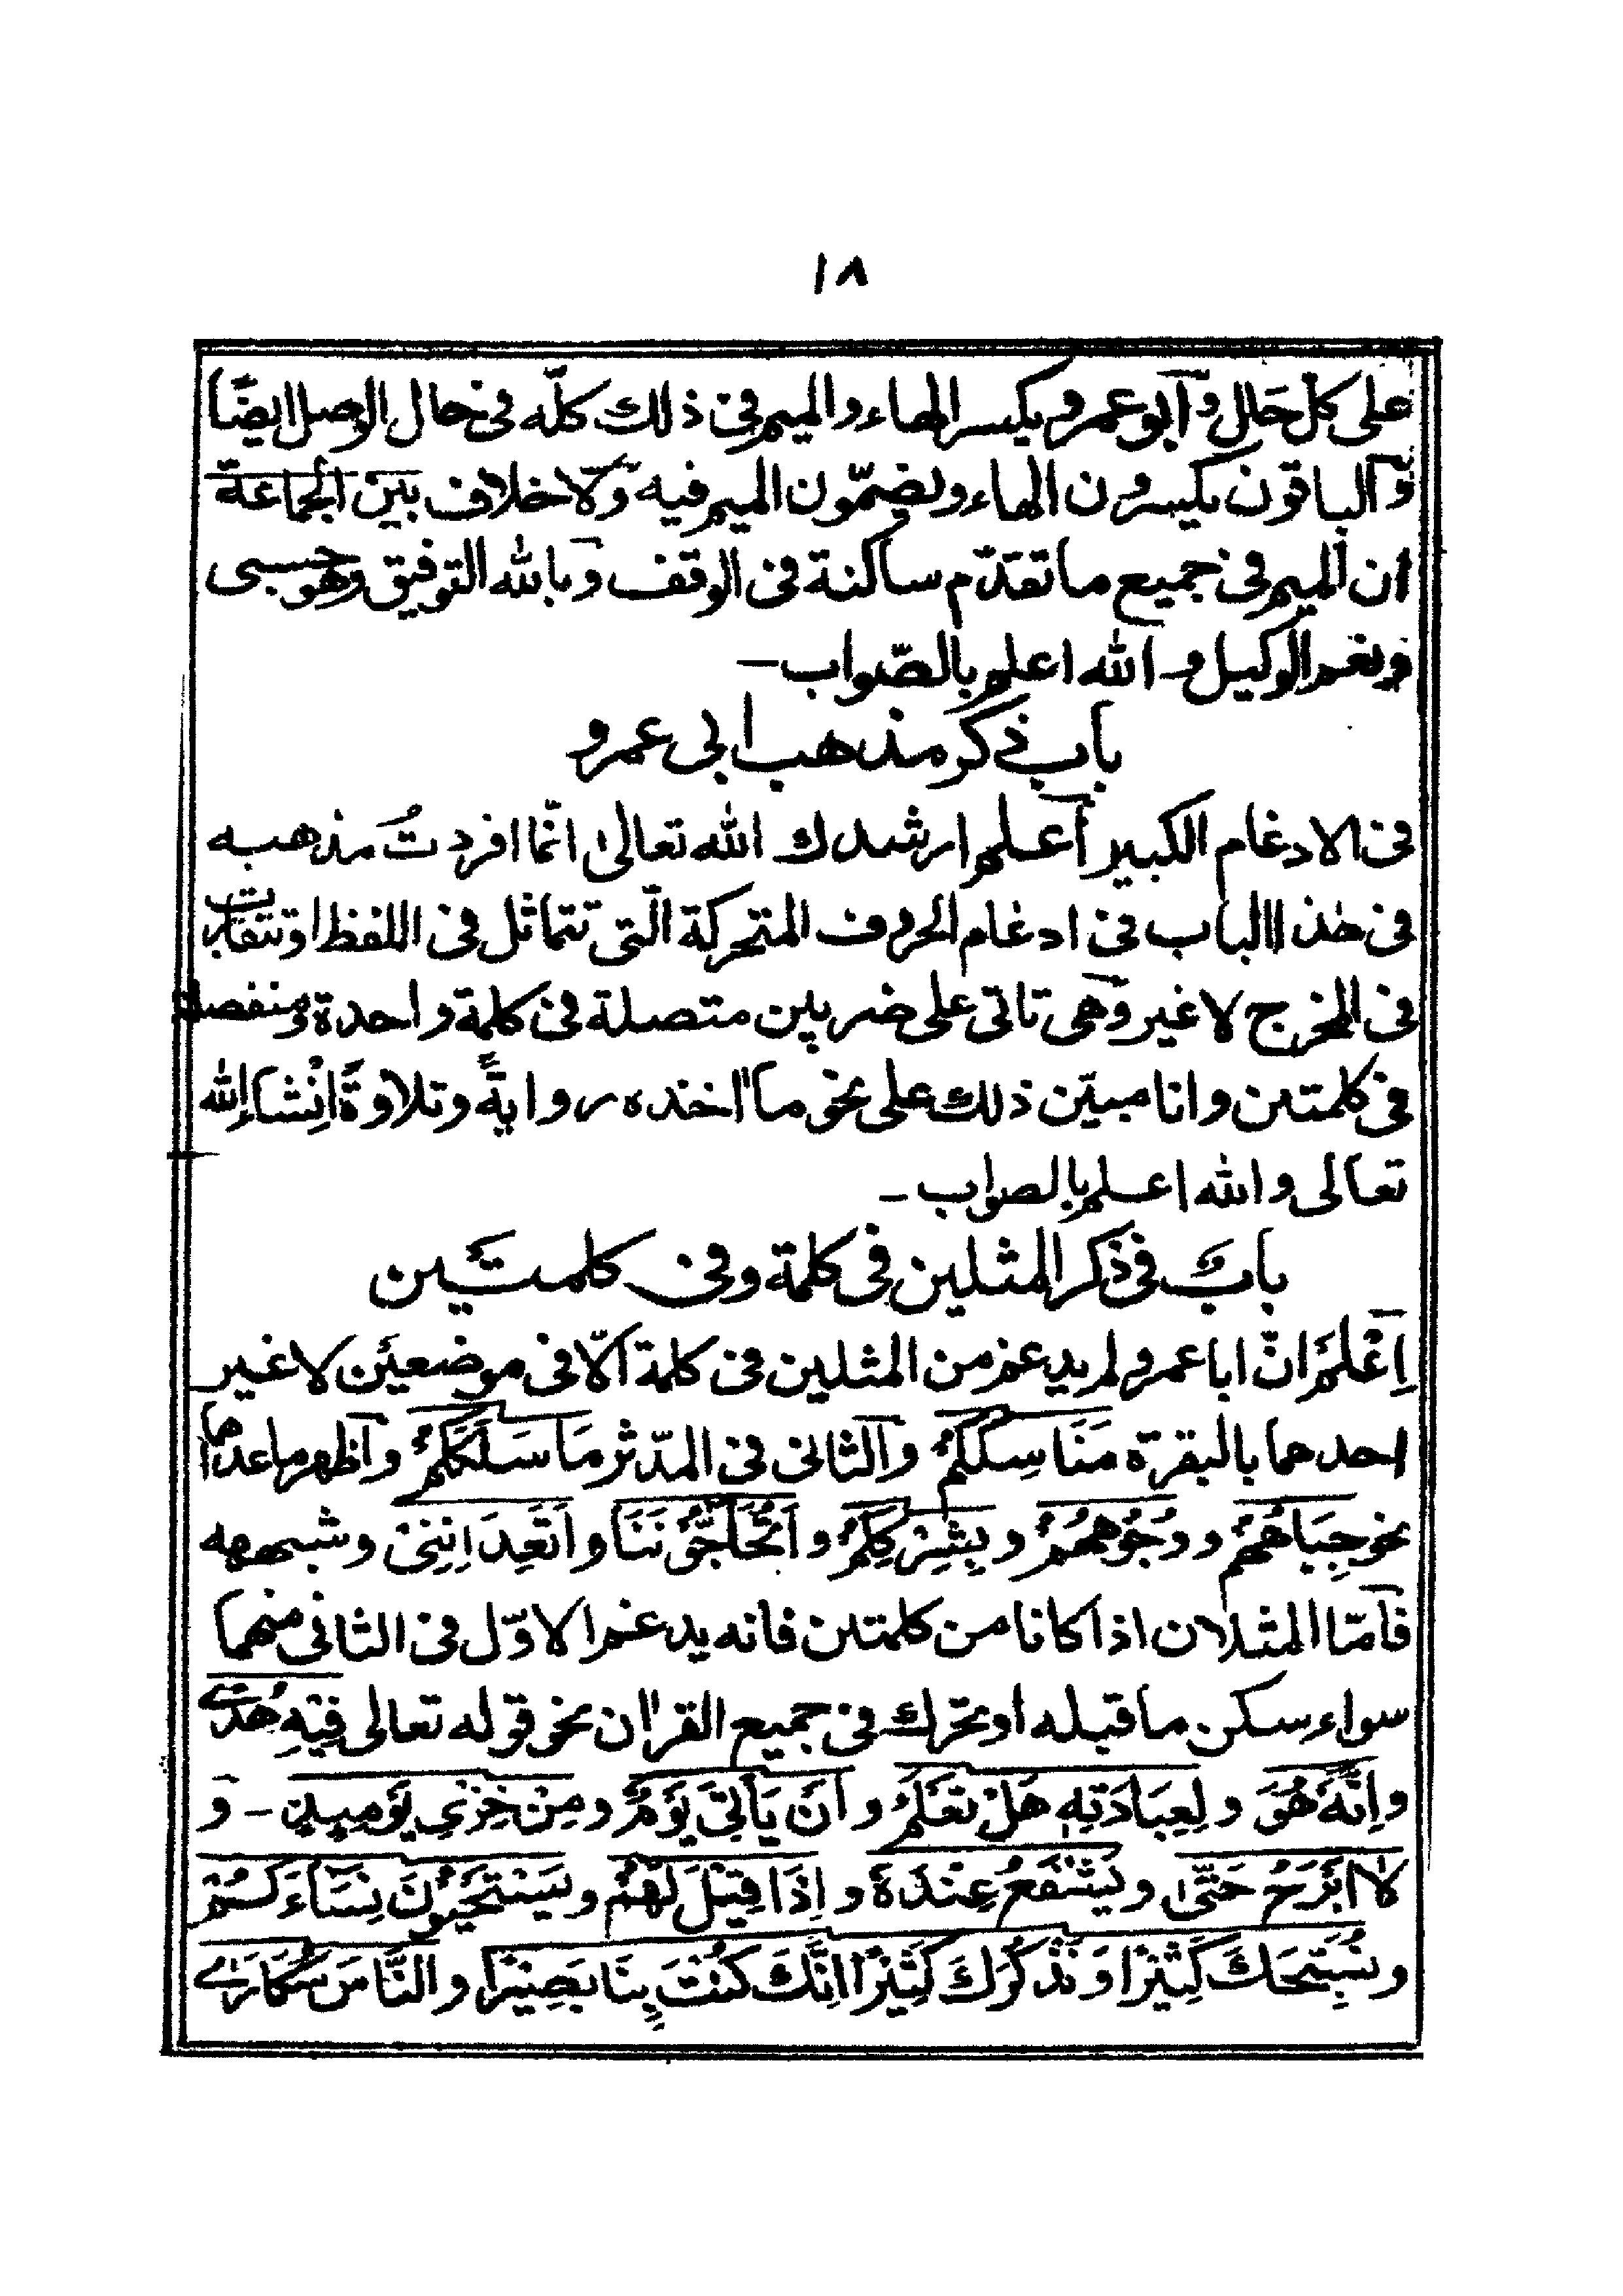 ١٨
على كل حال وابو عمرو يكسر الهاء والميم فى ذلك كلّه فى حال الوصل ايضًا
والباقون يكسرون الهاء ويضمّون الميم فيه ولا خلاف بين الجماعة
ان الميم فى جميع ما تقدّم ساكنة فى الوقف وبالله التوفيق وهو حسبى
ونعم الوكيل و الله اعلم بالصّواب–
باب ذكر مذهب ابى عمرو
فى الادغام الكبير اعلم ارشدك الله تعالىٰ انّما افردتُ مذهبه
فى هٰذا الباب فى ادغام الحروف المتحركة الّتى تتماثل فى اللفظ او تتقارب
فى المخرج لا غير وهى تاتى على ضربين متصلة فى كلمة واحدة ومنفصلة
فى كلمتين وانا مبيّن ذلك على نحو ما اخذه روايةً وتلاوةً اِنْشاءالله
تعالى والله اعلم بالصواب–
بابٌ فى ذكر المثلين فى كلمة وفى كلمتَين
اِعْلَمْ انّ ابا عمرو لم يدغم من المثلين فى كلمة الّا فى موضعَيْن لا غير
احدهما بالبقرة مَنَاسِكَكُمْ والثانى فى المدّثر مَا سَلَكَكُمْ واظهر ما عداهما
نحو جِبَاهُهُمْ ووُجُوهِهُمْ وبِشِرْكِكُمْ واَتُحَاجُّوْنَنَا واَتَعِدَانِنِىْ وشبهه
فامّا المثلان اذا كانا من كلمتين فانه يدغم الاوّل فى الثانى منهما
سواء سكن ما قبله او تحرك فى جميع القراٰن نحو قوله تعالى فِيْهِ هُدًى
واِنَّهٗ هُوَ ولِعِبَادَتِهٖ هَلْ تَعْلَمُ واَنْ يَاْتِىَ يَوْمٌ ومِنْ خِزْىِ يَوْمِئِذٍ – وَ
لَا اَبْرَحُ حَتّٰى ويَشْفَعُ عِنْدَهٗ واِذَا قِيْلَ لَهُمْ ويَسْتَحْيُوْنَ نِسَآءَكُمْ
ونُسَبِّحَكَ كَثِيْرًا وَنَذْكُرَكَ كَثِيْرًا اِنَّكَ كُنْتَ بِنَا بَصِيْرًا والنَّاسَ سُكَارٰى